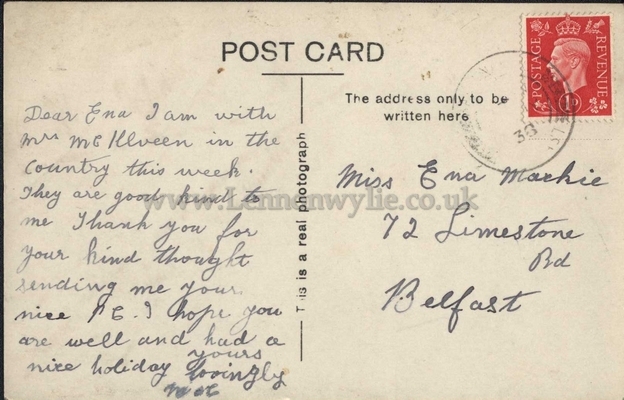 POST CARD
POSTAGE
REVENUE
1D
The address only to be
written here
This is a real photograph
Dear Ena I am with
Mrs McIlveen in the
Country this week.
They are good kind to
me Thank you for
your kind thought
sending me your
nice P.C. I hope you
are well and had a
nice holiday yours
lovingly
Miss Ena Mackie
72 Limestone
Rd
Belfast
www.Lennonwylie.co.uk